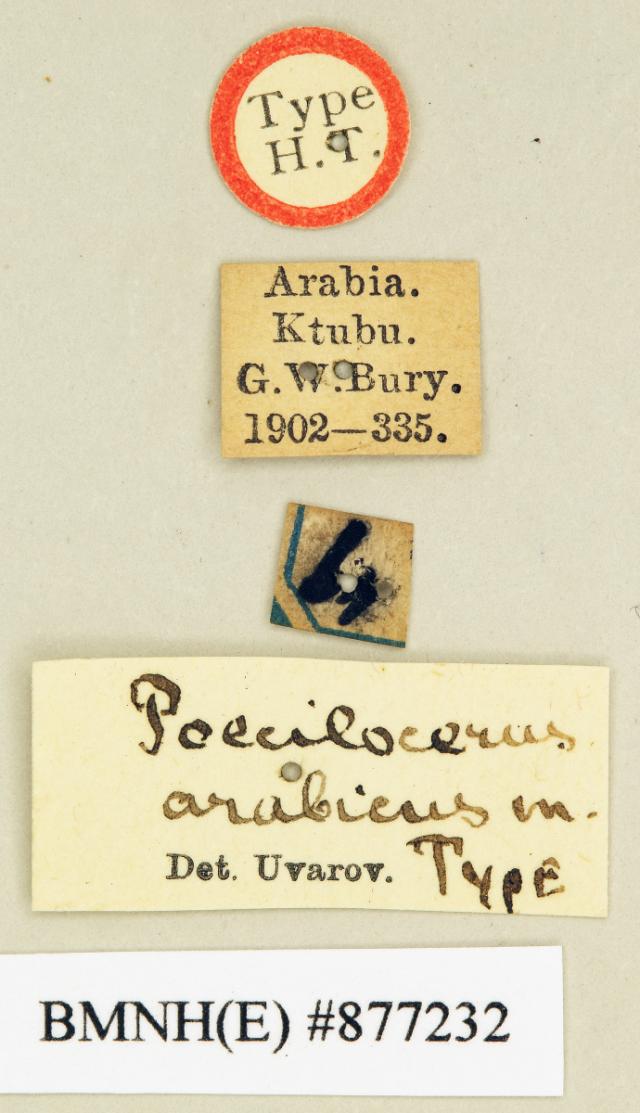 Type
H.T.
Arabia.
Ktubu.
G.W.Bury.
1902—335.
4
Poecilocerus
arabicus m.
Det. Uvarov. Type
BMNH(E) #877232